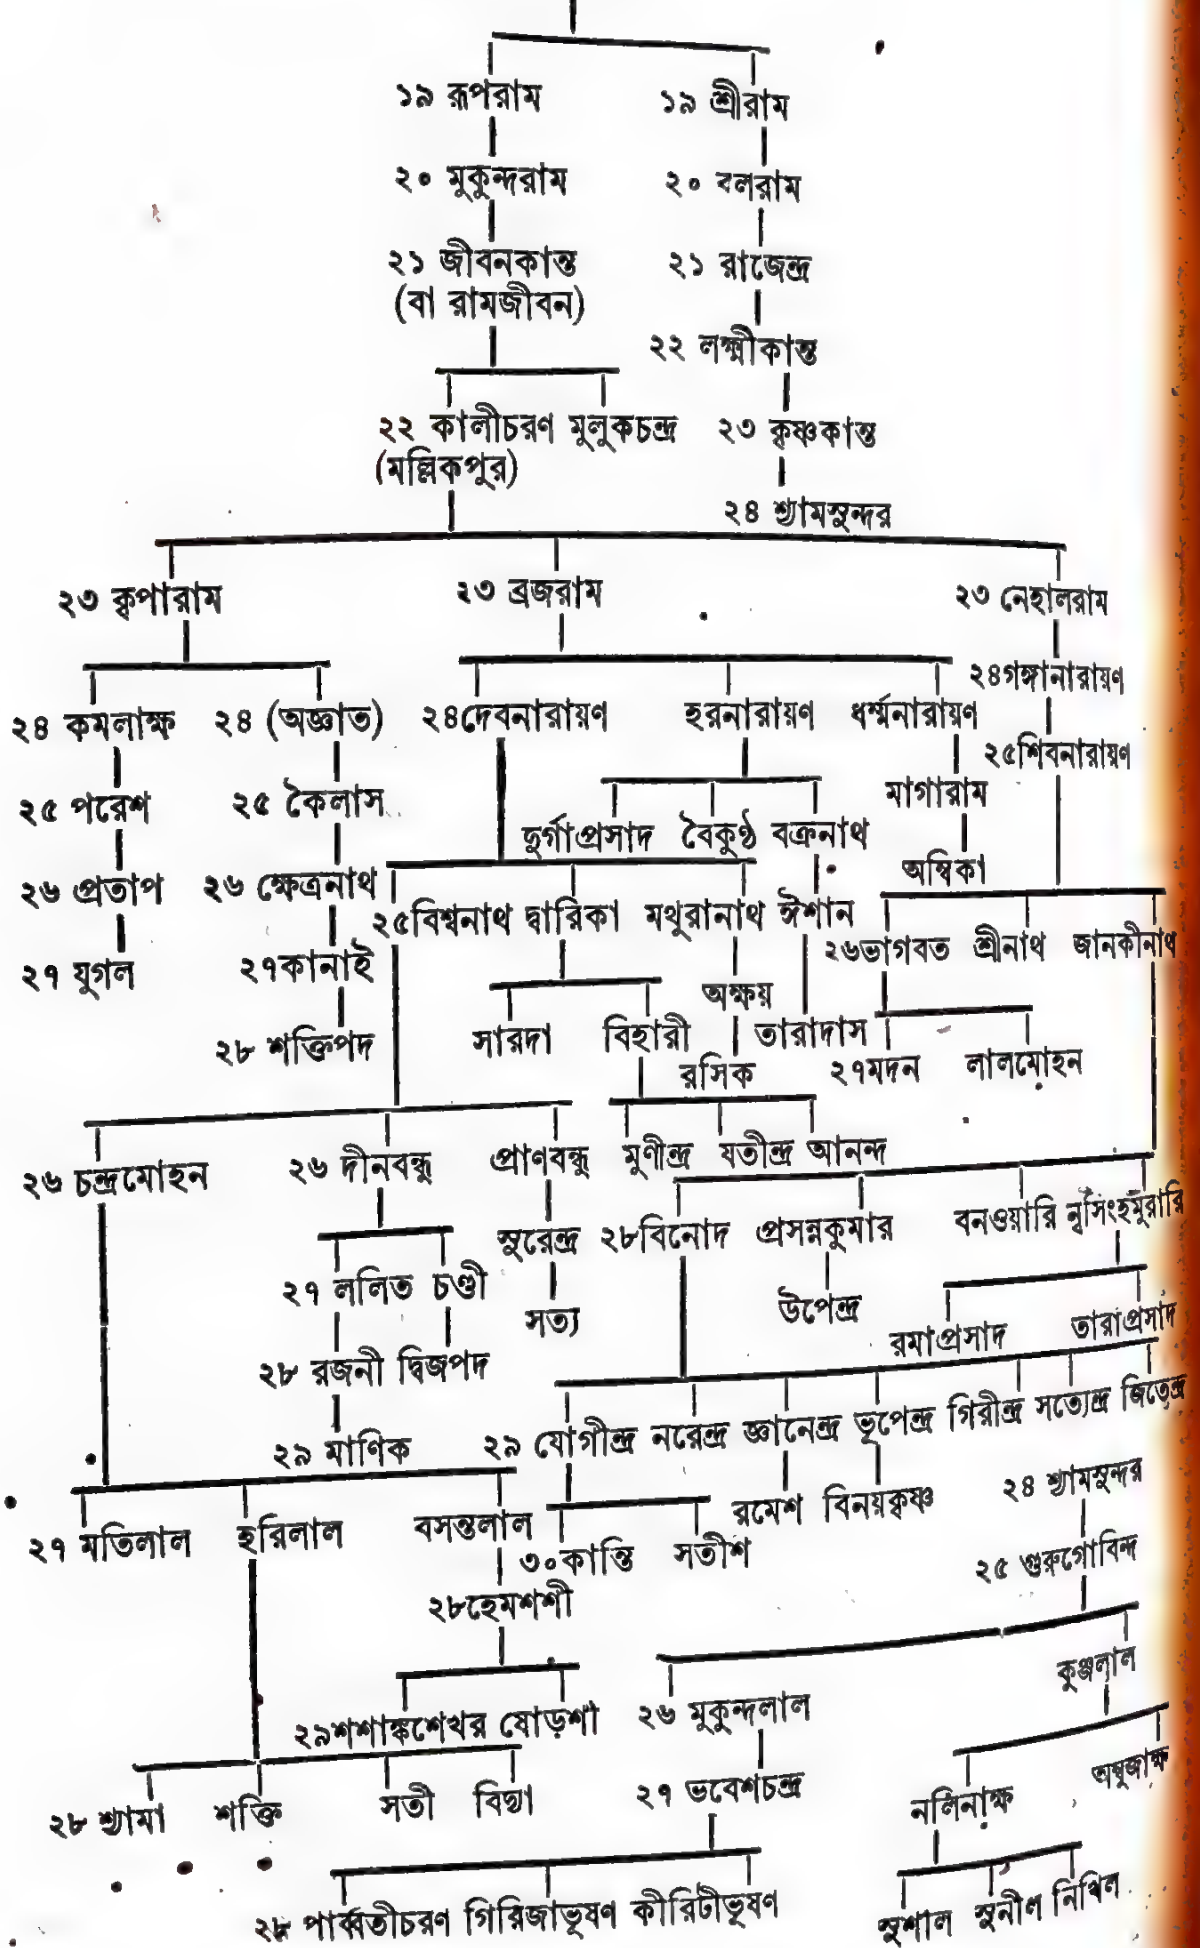 ১৯ রূপরাম ১৯ শ্রীরাম
২০ মুকুন্দরাম ২০ বলরাম
২১ জীবনকান্ত ২১ রাজেন্দ্র
(বা রামজীবন)
২২ লক্ষ্মীকান্ত
২২ কালীচরণ মুলুকচন্দ্র ২৩ কৃষ্ণকান্ত
(মল্লিকপুর)
২৪ শ্যামসুন্দর
২৩ কৃপারাম ২৩ ব্রজরাম ২৩ নেহালরাম
২৪গঙ্গানারায়ণ
২৪ কমলাক্ষ ২৪ (অজ্ঞাত) ২৪দেবনারায়ণ হরনারায়ণ ধর্ম্মনারায়ণ
২৫শিবনারায়ণ
২৫ পরেশ ২৫ কৈলাস মাগারাম
দুর্গাপ্রসাদ বৈকুণ্ঠ বক্রনাথ
অম্বিকা
২৬ প্রতাপ ২৬ ক্ষেত্রনাথ
২৫বিশ্বনাথ দ্বারিকা মথুরানাথ ঈশান
২৬ভাগবত শ্রীনাথ জানকীনাথ
২৭ যুগল ২৭কানাই
অক্ষয়
২৮ শক্তিপদ সারদা বিহারী তারাদাস
রসিক ২৭মদন লালমোহন
২৬ চন্দ্রমোহন ২৬ দীনবন্ধু প্রাণবন্ধু মুণীন্দ্র যতীন্দ্র আনন্দ
সুরেন্দ্র ২৮বিনোদ প্রসন্নকুমার বনওয়ারি নৃসিংহমুরারি
২৭ ললিত চণ্ডী
সত্য উপেন্দ্র
রমাপ্রসাদ তারাপ্রসাদ
২৮ রজনী দ্বিজপদ
২৯ মাণিক ২৯ যোগীন্দ্র নরেন্দ্র জ্ঞানেন্দ্র ভূপেন্দ্র গিরীন্দ্র সত্যেন্দ্র জিতেন্দ্র
২৪ শ্যামসুন্দর
রমেশ বিনয়কৃষ্ণ
২৭ মতিলাল হরিলাল বসন্তলাল
৩০কান্তি সতীশ ২৫ গুরুগোবিন্দ
২৮হেমশশী
কুঞ্জলাল
২৯শশাঙ্কশেখর ষোড়শী ২৬ মুকুন্দলাল
২৮ শ্যামা শক্তি সতী বিদ্যা ২৭ ভবেশচন্দ্র নলিনাক্ষ অম্বুজাক্ষ
২৮ পার্ব্বতীচরণ গিরিজাভূষণ কীরিটীভূষণ সুশীল সুনীল নিখিল